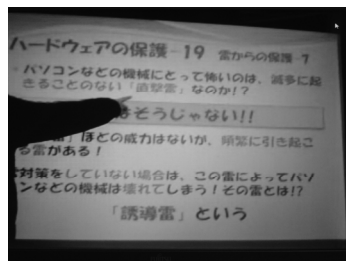 ハードウェアの保護－19 雷からの保護－7
パソコンなどの機械にとって怖いのは、滅多に起
きることのない「直撃雷」なのか!?
はそうじゃない!!
雷」ほどの威力はないが、頻繁に引き起こ
る雷がある！
対策をしていない場合は、この雷によってパソ
ンなどの機械は壊れてしまう！その雷とは!?
「誘導雷」という